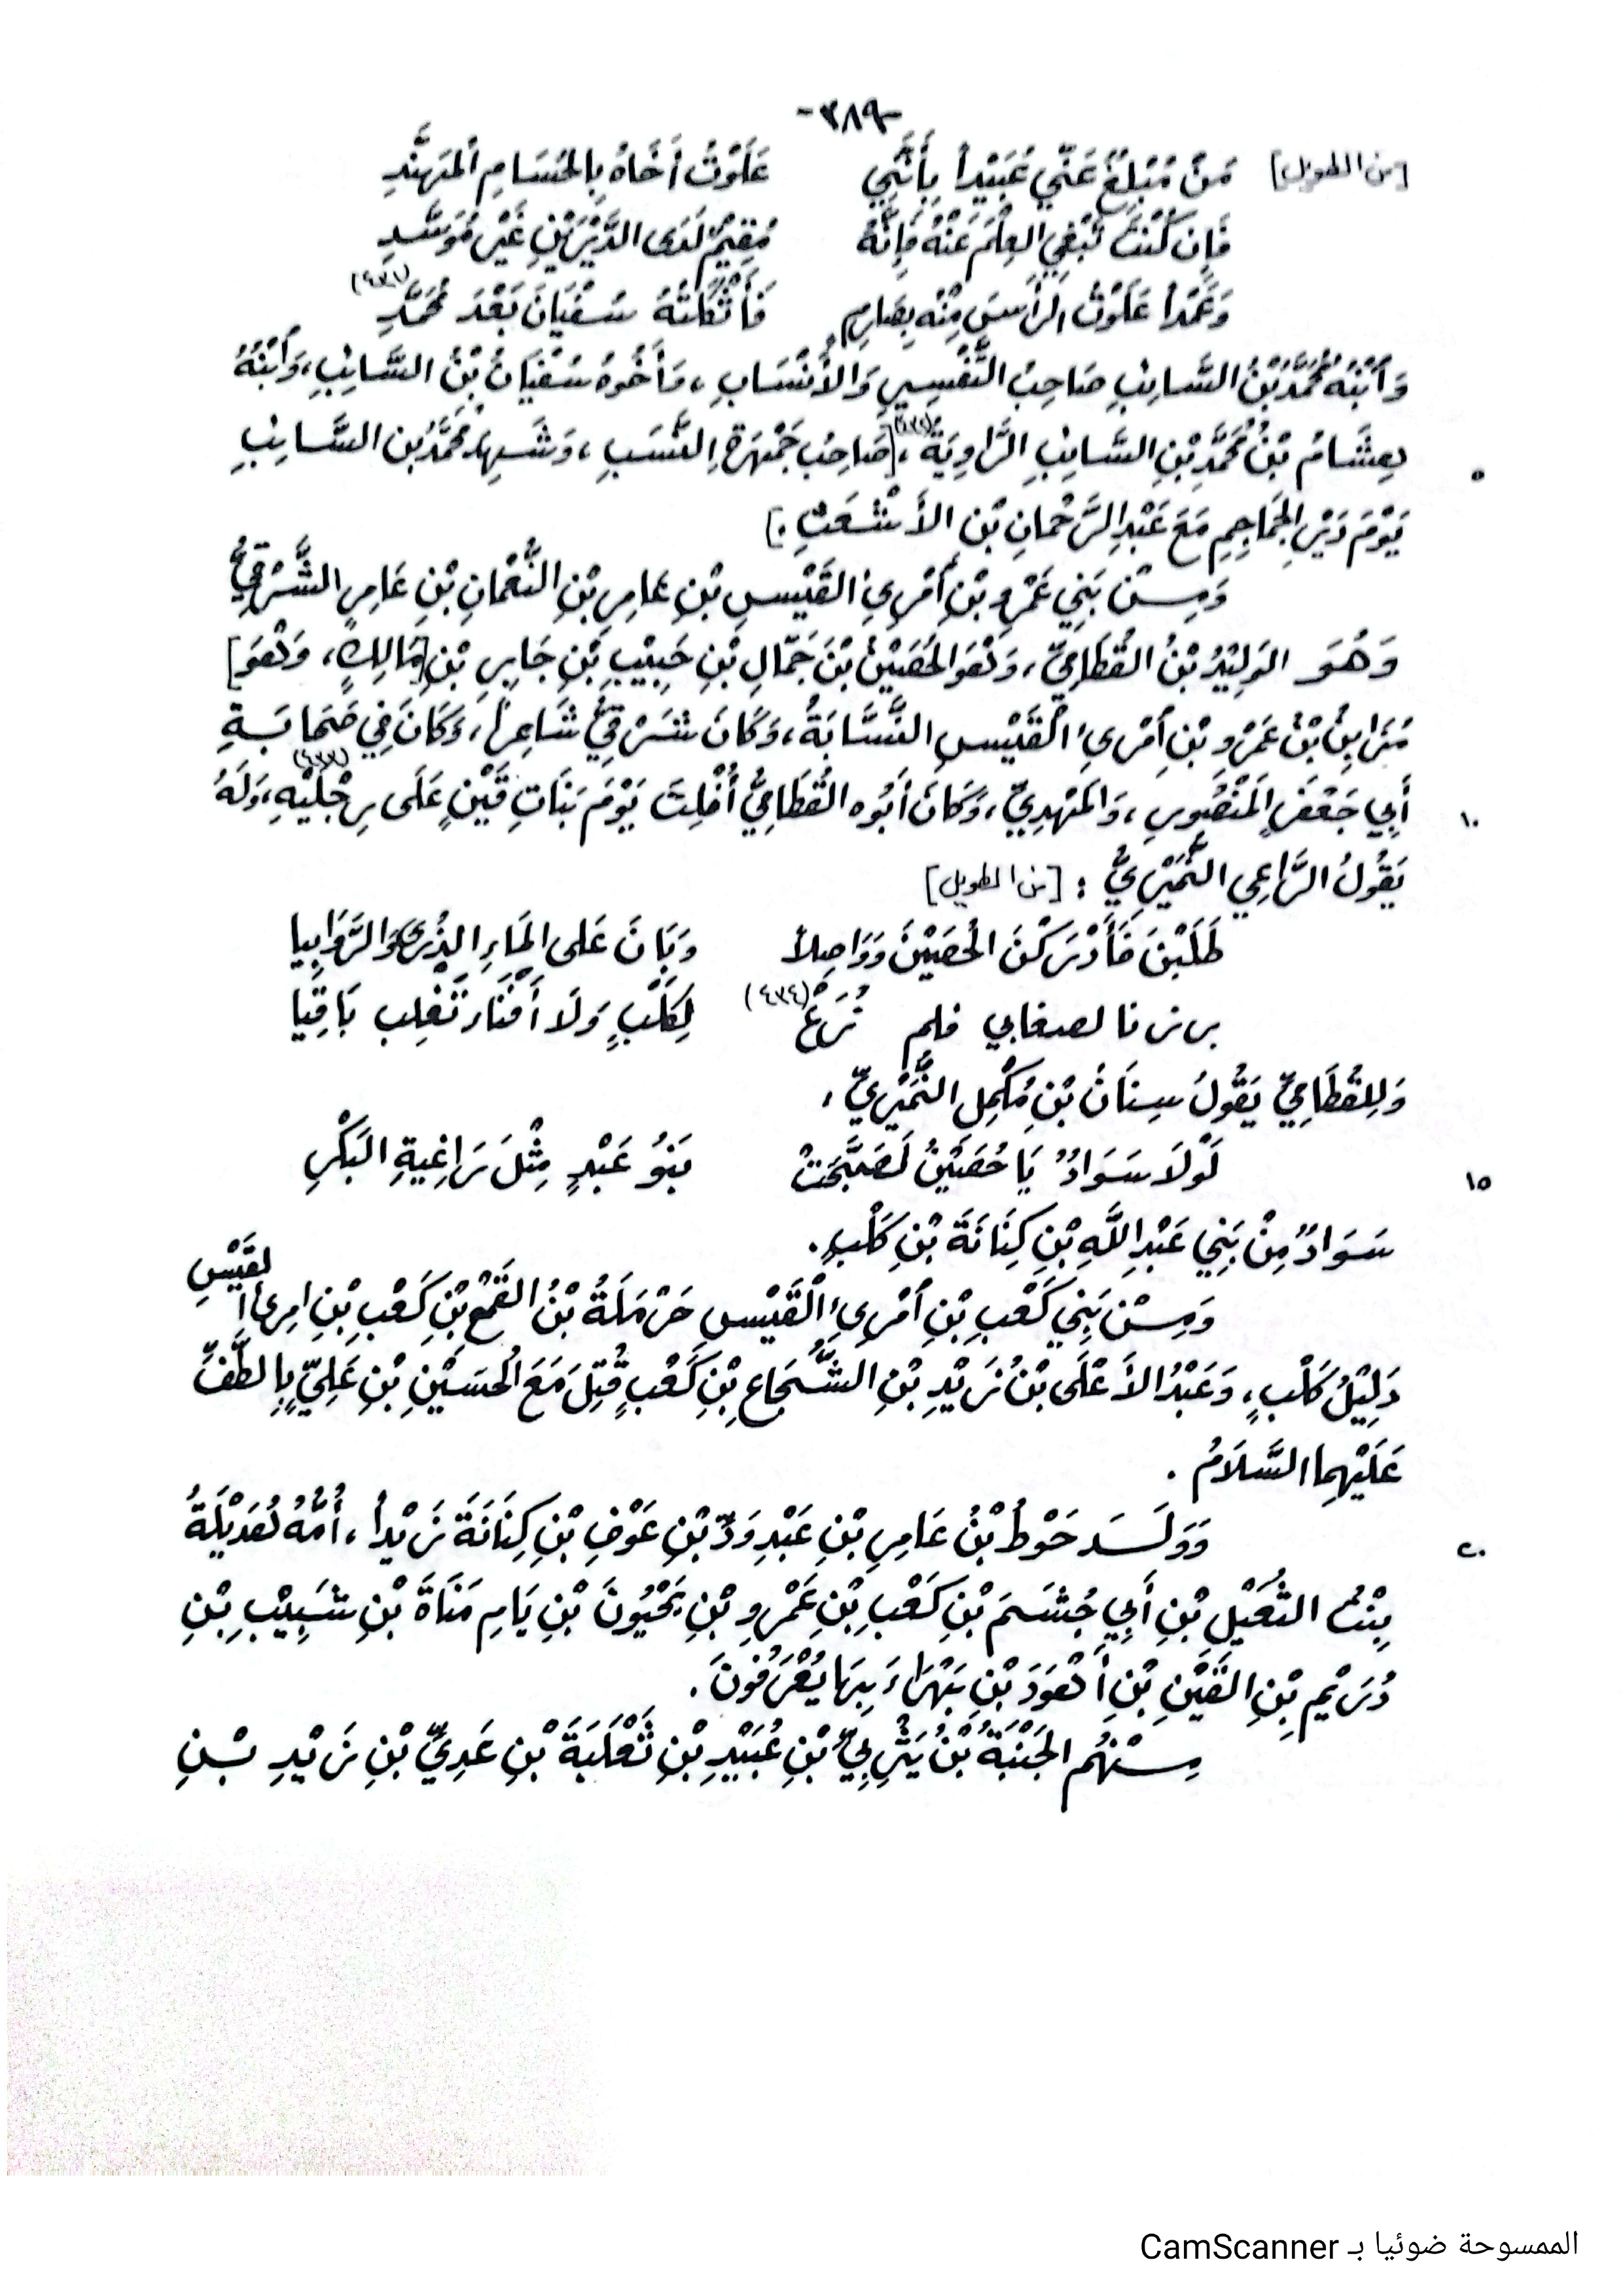 -٣٨٩-
[من الطويل] مَنْ مُبْلِغٌ عَنِّي عُبَيْداً بِأَنَّنِي عَلَوْتُ أَخَاهُ بِالحُسَامِ المُهَنَّدِ
فَإِن كُنْتَ تَبْغِي العِلْمَ عَنْهُ فَإِنَّهُ مُقِيمٌ لَدَى الدَّيْرَيْنِ غَيْرَ مُوَسَّدِ
وَعَمْداً عَلَوْتُ الرَّأْسَ مِنْهُ بِصَارِمٍ فَأَثْكَلْتُهُ سُفْيَانَ بَعْدَ مُحَمَّدِ (٤٣١)
وَابْنُهُ مُحَمَّدُ بْنُ السَّائِبِ صَاحِبُ التَّفْسِيرِ وَالأَنْسَابِ، وَأَخُوهُ سُفْيَانُ بْنُ السَّائِبِ، وَابْنُهُ
هِشَامُ بْنُ مُحَمَّدِ بْنِ السَّائِبِ الرَّاوِيَةُ، (٤٣٢) [صَاحِبُ جَمْهَرَةِ النَّسَبِ، وَشَهِدَ مُحَمَّدُ بْن السَّائِبِ ٥
يَوْمَ دَيْرِ الجَمَاجِمِ مَعَ عَبْدِ الرَّحْمَانِ بْنِ الأَشْعَثِ.]
وَمِـنْ بَنِي عَمْرِو بْنِ امْرِئِ القَيْسِ بْنِ عَامِرِ بْنِ النُّعْمَانِ بْنِ عَامِرٍ الشَّرْقِيُّ
وَهُوَ الوَلِيْدُ بْنُ القُطَامِيِّ، وَهُوَ الحُصَيْنُ بْنَ جَمَّالِ بْنِ حَبِيْبِ بْنِ جَابِرِ بْنِ [مَالِكٍ، وَهُوَ]
مُرَابِنُ بْنُ عَمْرِو بْنِ امْرِئِ الْقَيْسِ النَّسَّابَةُ، وَكَانَ شَرْقِيُّ شَاعِراً، وَكَانَ فِي صَحَابَةِ
أَبِي جَعْفَرٍ المَنْصُورِ، وَالمَهْدِيِّ، وَكَانَ أَبُوه القُطَامِيُّ أُفْلِتَ يَوْمَ بَنَاتِ قَيْنٍ عَلَى رِجْلَيْهِ، (٤٣٣) وَلَهُ ١٠
يَقُولُ الرَّاعِي النُّمَيْرِيُّ : [من الطويل]
طَلَبْنَ فَأَدْرَكْنَ الحُصَيْنَ وَوَاصِلاً وَبَانَ عَلى المَاءِ الذُرَى وَالرَّوَابِيا
برزنا لصغابي فلم نُرَعْ (٤٣٤) لِكَلْبٍ وَلاَ أَفْنَاء تَغْلِب بَاقِيَا
وَلِلقُطَامِيِّ يَقُولُ سِنَانُ بْنِ مُكْمِل النُّمَيْرِيِّ،
لَوْلاَ سَوَادٌ يَا حُصَيْنُ لَصَبَّحَتْ بَنُو عَبْدٍ مِثْلَ رَاغِيةِ البَكْرِ ١٥
سَوَادٌ مِنْ بَنِي عَبْدِ اللَّهِ بْنِ كِنَانَةَ بْنِ كَلْبٍ.
وَمِـنْ بَنِي كَعْبِ بْنِ امْرِئِ الْقَيْسِ حَرْمَلَةُ بْنُ القَمْعِ بْنِ كَعْبِ بْنِ امرِئ القَيْسِ
دَلِيْلُ كَلْبٍ، وَعَبْدُ الأَعْلَى بْنُ زَيْدِ بْنِ الشُّجَاعِ بْنِ كَعْبٍ قُتِلَ مَعَ الْحُسَيْنِ بْنِ عَلِيٍّ بِالطَّفِّ
عَلَيْهِما السَّلاَمُ .
وَوَلَـد حَوْطُ بْنُ عَامِرِ بْنِ عَبْدِ وَدِّ بْنِ عَوْفِ بْنِ كِنَانَةَ زَيْداً، أُمُّهُ هُذَيْلَةُ ٢٠
بِنْتُ الثُّعَيْلِ بْنِ أَبِي جُشَمَ بْنِ كَعْبِ بْنِ عَمْرِو بْنِ يَحْيُونَ بْنِ يَامِ مَنَاةَ بْنِ شَبِيْبِ بْنِ
دُرَيْمِ بْنِ القَيْنِ بْنِ أَهْوَدَ بْنِ بَهْرَاءَ بِهَا يُعْرَفُونَ.
مِـنْهُم الجَنَبَةُ بْنُ يَثْرِبِيِّ بْنِ عُبَيْدِ بْنِ ثَعْلَبَةَ بْنِ عَدِيِّ بْنِ زَيْدِ بْنِ
الممسوحة ضوئيا بـ CamScanner